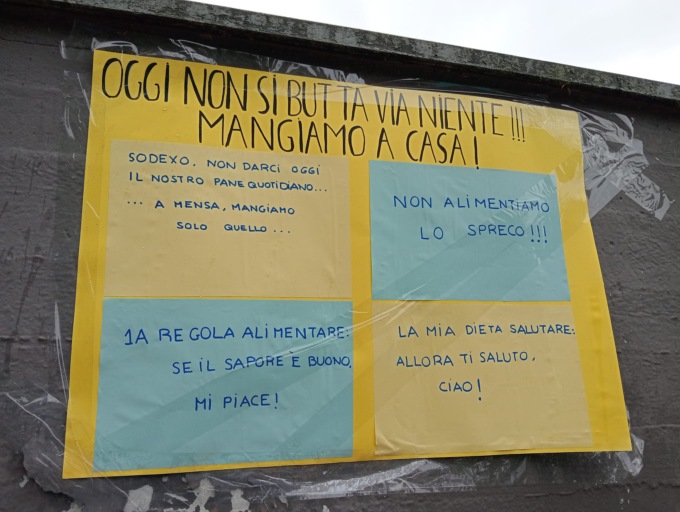 OGGI NON SI BUTTA VIA NIENTE!!!
MANGIAMO A CASA!
SODEXO, NON DARCI OGGI
IL NOSTRO PANE QUOTIDIANO...
... A MENSA, MANGIAMO
SOLO QUELLO...
NON ALIMENTIAMO
LO SPRECO!!!
1A REGOLA ALIMENTARE:
SE IL SAPORE È BUONO,
MI PIACE!
LA MIA DIETA SALUTARE:
ALLORA TI SALUTO,
CIAO!